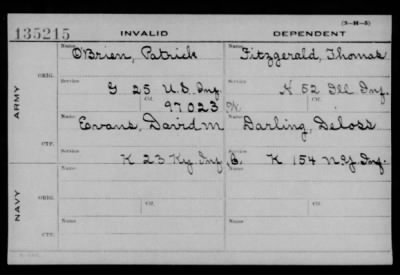 (3-H-5)
135215 INVALID DEPENDENT
Name O'Brien, Patrick Name Fitzgerald, Thomas
ARMY
ORIG.
Service G 25 U.S. Inf. Service K 52 Ill Inf.
Ctf. 97023 Ctf.
Name Evans, David M Name Darling, Deloss
CTF.
Service K 23 Ky Inf. C. Service K 154 N.Y. Inf.
NAVY
Name Name
ORIG.
Ctf. Ctf.
Name Name
CTF.